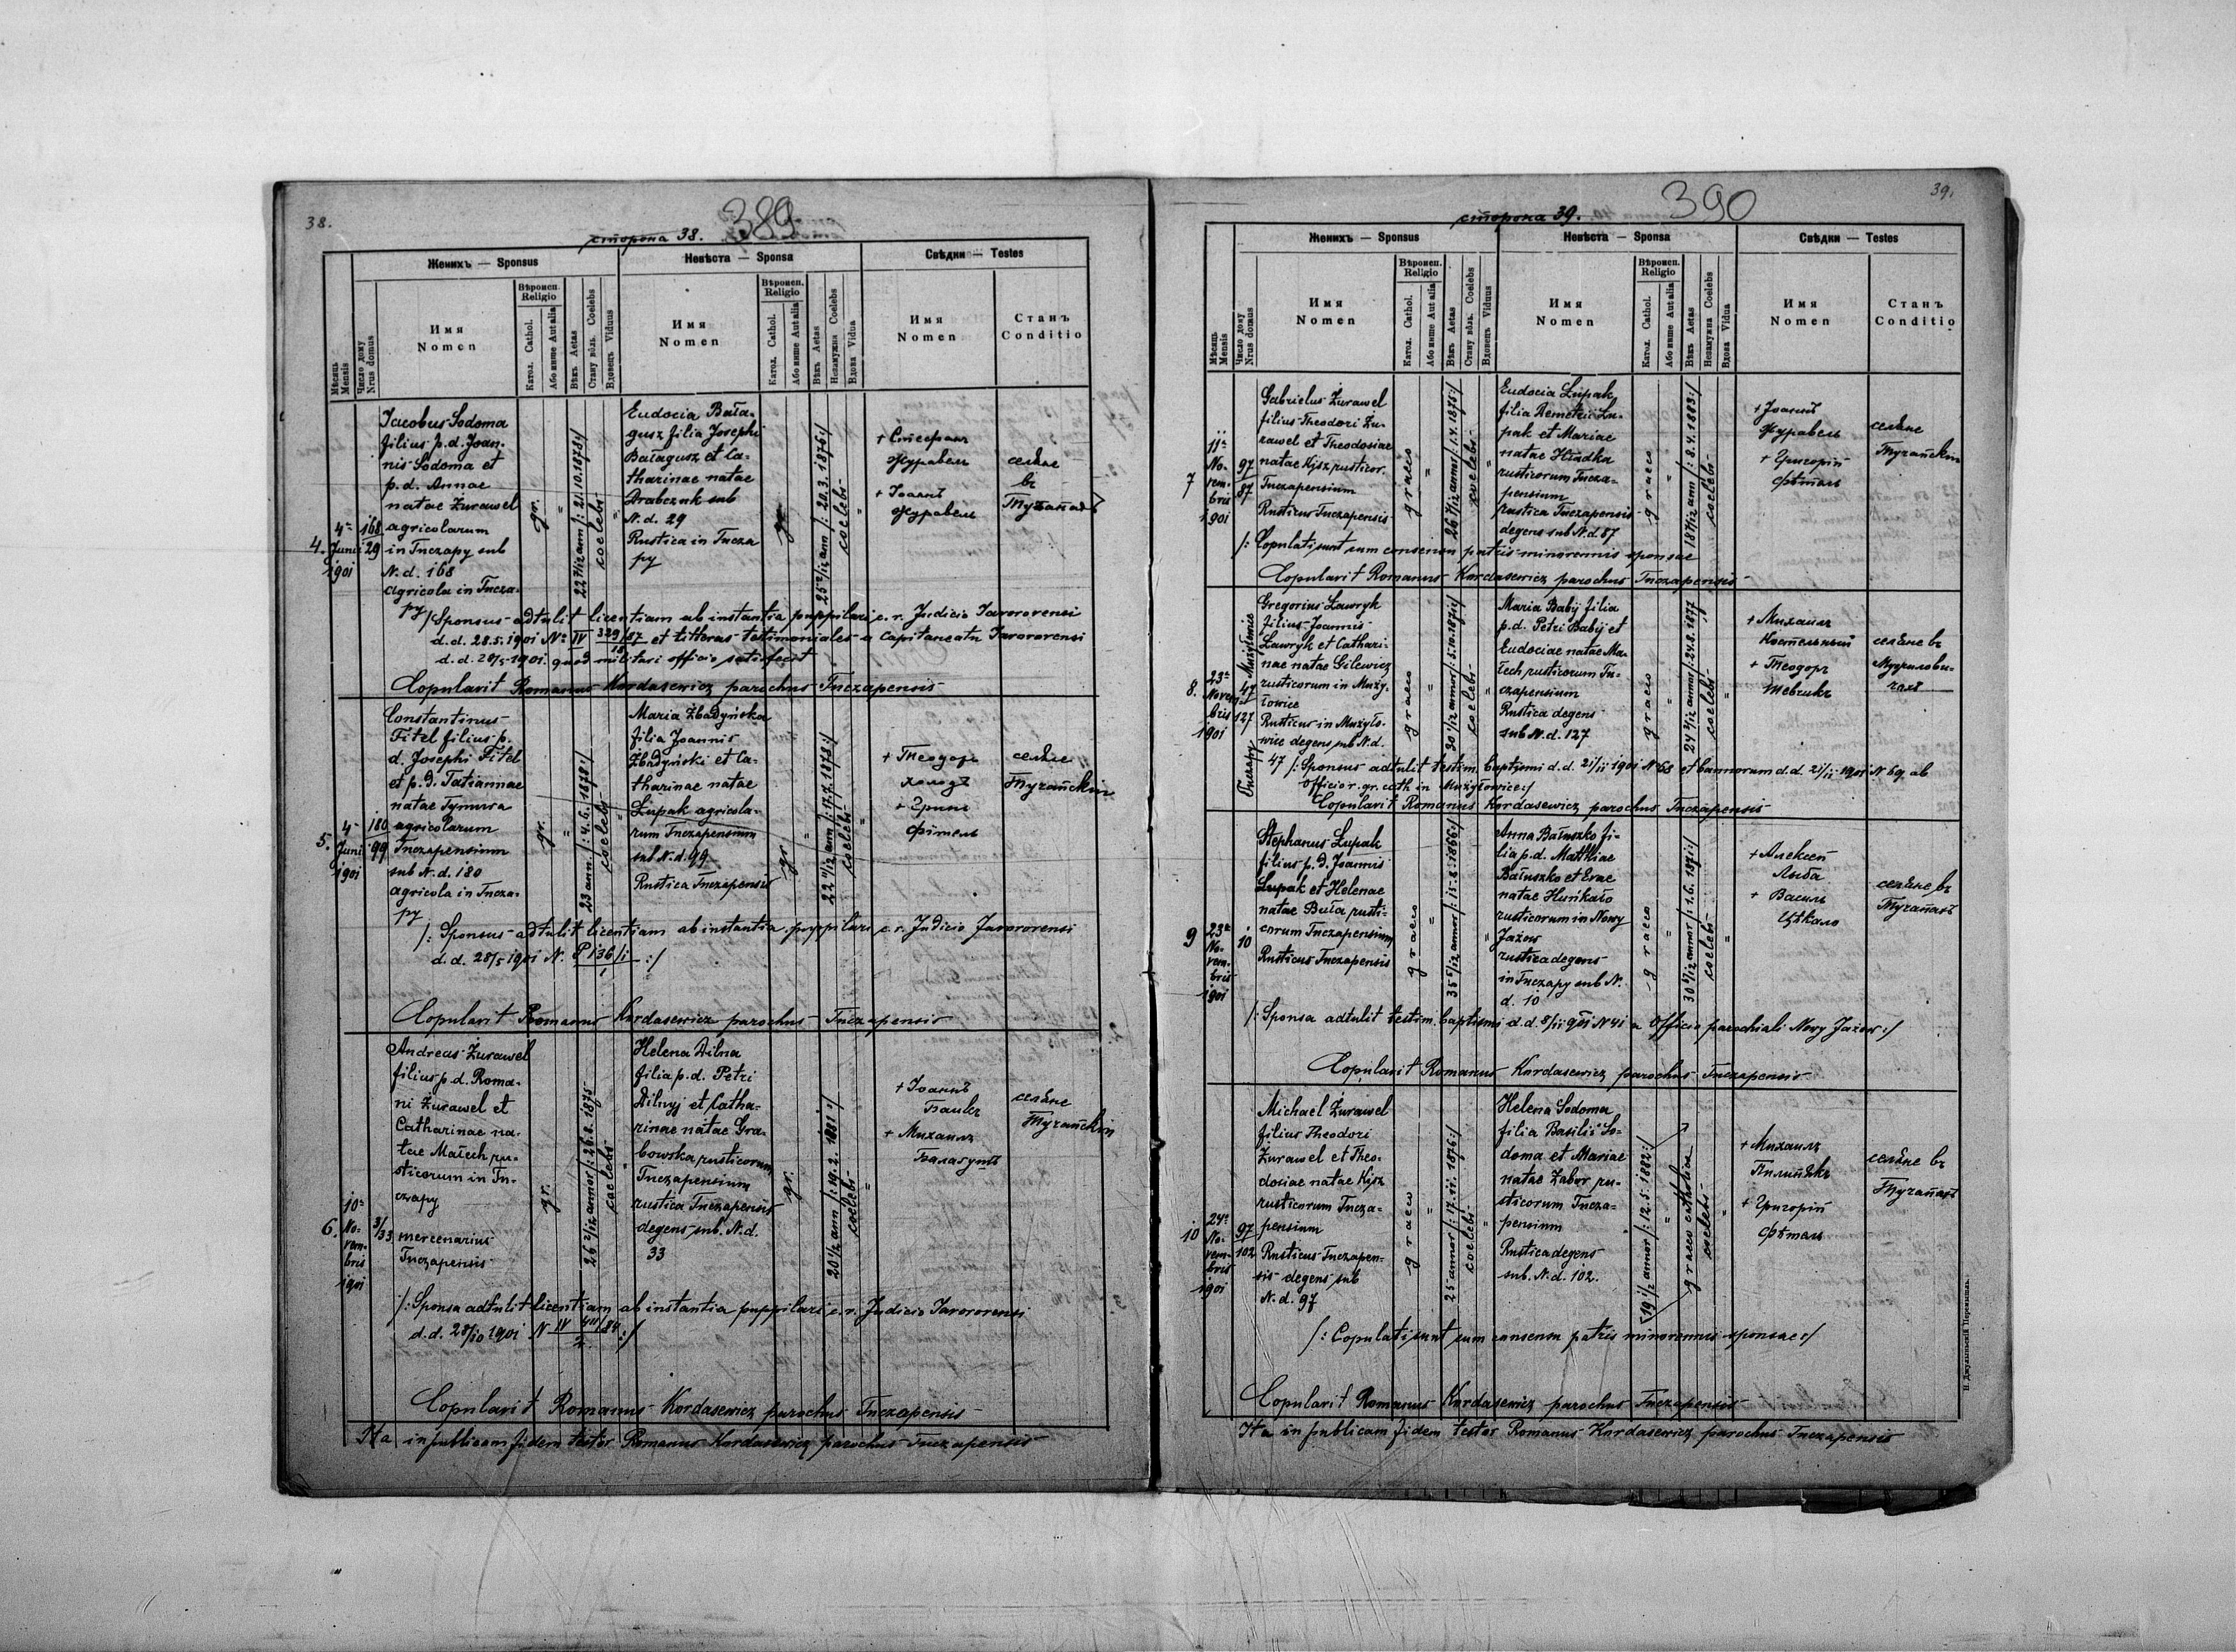 38.
389
сторона 38.
Женихъ — Sponsus
Невѣста — Sponsa
Свѣдки — Testes
Мѣсяць Mensis
Число дому Nrus domus
Имя Nomen
Вѣроисп. Religio
Катол. Cathol.
Або инше Aut alia
Вѣкъ Aetas
Стану вôль. Coelebs
Вдовець Viduus
Имя Nomen
Вѣроисп. Religio
Катол. Cathol.
Або инше Aut alia
Вѣкъ Aetas
Незамужна Coelebs
Вдова Vidua
Имя Nomen
Станъ Conditio
4.
4ta Junii 1901
168
29
Jacobus Sodoma
filius p.d. Joan-
nis Sodoma et
p.d. Annae
natae Żurawel
agricolarum
in Tuczapy sub
N.d. 168
agricola in Tucza-
py
gr.
"
22 7/12 ann /: 21.10.1878 :/
coelebs
"
Eudocia Bała-
gusz filia Josephi
Bałagusz et Ca-
tharinae natae
Drabczuk sub
N.d. 29
Rustica in Tucza
py
gr.
25 2/12 ann /: 20.3.1876 :/
coelebs
"
+ Стефанъ
Журавель
+ Іоаннъ
Журавель
селяне
въ
Тучапахъ
/: Sponsus adtulit licentiam ab instantia puppilari c. r. Judicio Javororensi
d.d. 28.5.1901 No IV 329/18 87 et litteras testimoniales a Capitaneatu Javororensi
d.d. 20/5 1901. quod militari officio satisfecit
Copulavit Romanus Kordasewicz parochus Tuczapensis
5.
4ta Junii 1901
180
99
Constantinus
Fitel filius p.
d. Josephi Fitel
et p.d. Tatiannae
natae Tymura
agricolarum
Tuczapensium
sub N.d. 180
agricola in Tucza-
py
gr.
"
23 ann. /: 4.6.1878 :/
coelebs
"
Maria Zbadyńska
filia Joannis
Zbadyński et Ca-
tharinae natae
Łupak agricola-
rum Tuczapensium
sub N.d. 99
Rustica Tuczapensis
gr.
"
22 11/12 ann /: 17.7.1878 :/
coelebs
"
+ Теодоръ
Холодъ
+ Гринь
Фітель
селяне
Тучапскіи
/: Sponsus adtulit licentiam ab instantia puppilari c. r. Judicio Javororensi
d.d. 28/5 1901 N. P 136/1 :/
Copulavit Romanus Kordasewicz parochus Tuczapensis
6.
10a Novembris 1901
3/33
Andreas Żurawel
filius p.d. Roma-
ni Żurawel et
Catharinae na-
tae Małech ru-
sticorum in Tu-
czapy
mercenarius
Tuczapensis
gr.
26 2/12 annor /: 26.8.1875
coelebs
"
Helena Dilna
filia p.d. Petri
Dilnyj et Catha-
rinae natae Gra-
bowska rusticorum
Tuczapensium
rustica Tuczapensis
degens sub. N.d.
33
gr.
20 1/2 ann /: 19.2.1881 :/
coelebs
"
+ Іоаннъ
Баикъ
+ Михаилъ
Балагушъ
селяне
Тучапскіи
/: Sponsa adtulit licentiam ab instantia puppilari c. r. Judicio Javororensi
d.d. 28/10 1901 N IV 411/2 84 :/
Copulavit Romanus Kordasewicz parochus Tuczapensis
Ita in publicam fidem testor Romanus Kordasewicz parochus Tuczapensis
39.
390
сторона 39.
Женихъ — Sponsus
Невѣста — Sponsa
Свѣдки — Testes
Мѣсяць Mensis
Число дому Nrus domus
Имя Nomen
Вѣроисп. Religio
Катол. Cathol.
Або инше Aut alia
Вѣкъ Aetas
Стану вôль. Coelebs
Вдовець Viduus
Имя Nomen
Вѣроисп. Religio
Катол. Cathol.
Або инше Aut alia
Вѣкъ Aetas
Незамужна Coelebs
Вдова Vidua
Имя Nomen
Станъ Conditio
7
11a Novembris 1901
97
87
Gabrielus Żurawel
filius Theodori Żu-
rawel et Theodosiae
natae Kjsz rusticor.
Tuczapensium
Rusticus Tuczapensis
graeco
"
26 7/12 annor /: 1.4.1875 :/
coelebs
"
Eudocia Łupak
filia Demetrii Łu-
pak et Mariae
natae Hładka
rusticorum Tucza-
pensium
rustica Tuczapensis
degens sub N.d. 87
graeco
"
18 7/12 ann /: 8.4.1883 :/
coelebs
"
+ Іоаннъ
Журавель
+ Григорій
Фѣталь
селяне
Тучапскіи
/: Copulati sunt cum consensu patris minorennis sponsae
Copulavit Romanus Kordasewicz parochus Tuczapensis
8.
23a Novembris 1901
Mużyłowice
47
127
Tuczapy
Gregorius Ławryk
filius Joannis
Ławryk et Cathari-
nae natae Gilewicz
rusticorum in Muży-
łowice
Rusticus in Mużyło-
wice degens sub N.d.
47
graeco
"
30 1/12 annor /: 5.10.1871 :/
coelebs
"
Maria Babij filia
p.d. Petri Babij et
Eudociae natae Ma-
łech rusticorum Tu-
czapensium
Rustica degens
sub N.d. 127
graeco
"
24 3/12 annor /: 24.8.1877 :/
coelebs
"
+ Михаилъ
Костельный
+ Теодоръ
Шевчикъ
селяне въ
Мужилови-
чахъ
/: Sponsus adtulit testim. baptismi d.d. 21/11 1901 N 68 et bannorum d.d. 21/11 1901 N 69 ab
Officio r. gr. cath in Mużyłowice :/
Copulavit Romanus Kordasewicz parochus Tuczapensis
9
23a Novembris 1901
10
Stephanus Łupak
filius p.d. Joannis
Łupak et Helenae
natae Buła rusti-
corum Tuczapensium
Rusticus Tuczapensis
graeco
"
coelebs
"
Anna Bałuszko fi-
lia p.d. Matthiae
Bałuszko et Evae
natae Huńkało
rusticorum in Nowy
Jażow
rustica degens
in Tuczapy sub N.
d. 10
graeco
"
30 5/12 annor /: 1.6.1871 :/
coelebs
"
+ Алексей
Лыба
+ Василь
Цѣкало
селяне въ
Тучапахъ
/: Sponsa adtulit testim. baptismi d.d. 8/11 901 N 41 a Officio parochiali Nowy Jażow :/
Copulavit Romanus Kordasewicz parochus Tuczapensis
10
24a Novembris 1901
97
102
Michael Żurawel
filius Theodori
Żurawel et Theo-
dosiae natae Kjsz
rusticorum Tucza-
pensium
Rusticus Tuczapen-
sis degens sub
N.d. 97
graeco
"
25 annor /: 17.11.1876 :/
coelebs
"
Helena Sodoma
filia Basilii So-
doma et Mariae
natae Zabor ru-
sticorum Tucza-
pensium
Rustica degens
sub. N.d. 102.
19 1/2 annor /: 12.5.1882 :/
"
graeco catholica
coelebs
"
+ Михаилъ
Пилипѣкъ
+ Григорій
Фѣталь
селяне въ
Тучапахъ
/: Copulati sunt cum consensu patris minorennis sponsae :/
Copulavit Romanus Kordasewicz parochus Tuczapensis
Ita in publicam fidem testor Romanus Kordasewicz parochus Tuczapensis
Н. Джулыньскій Перемышль.